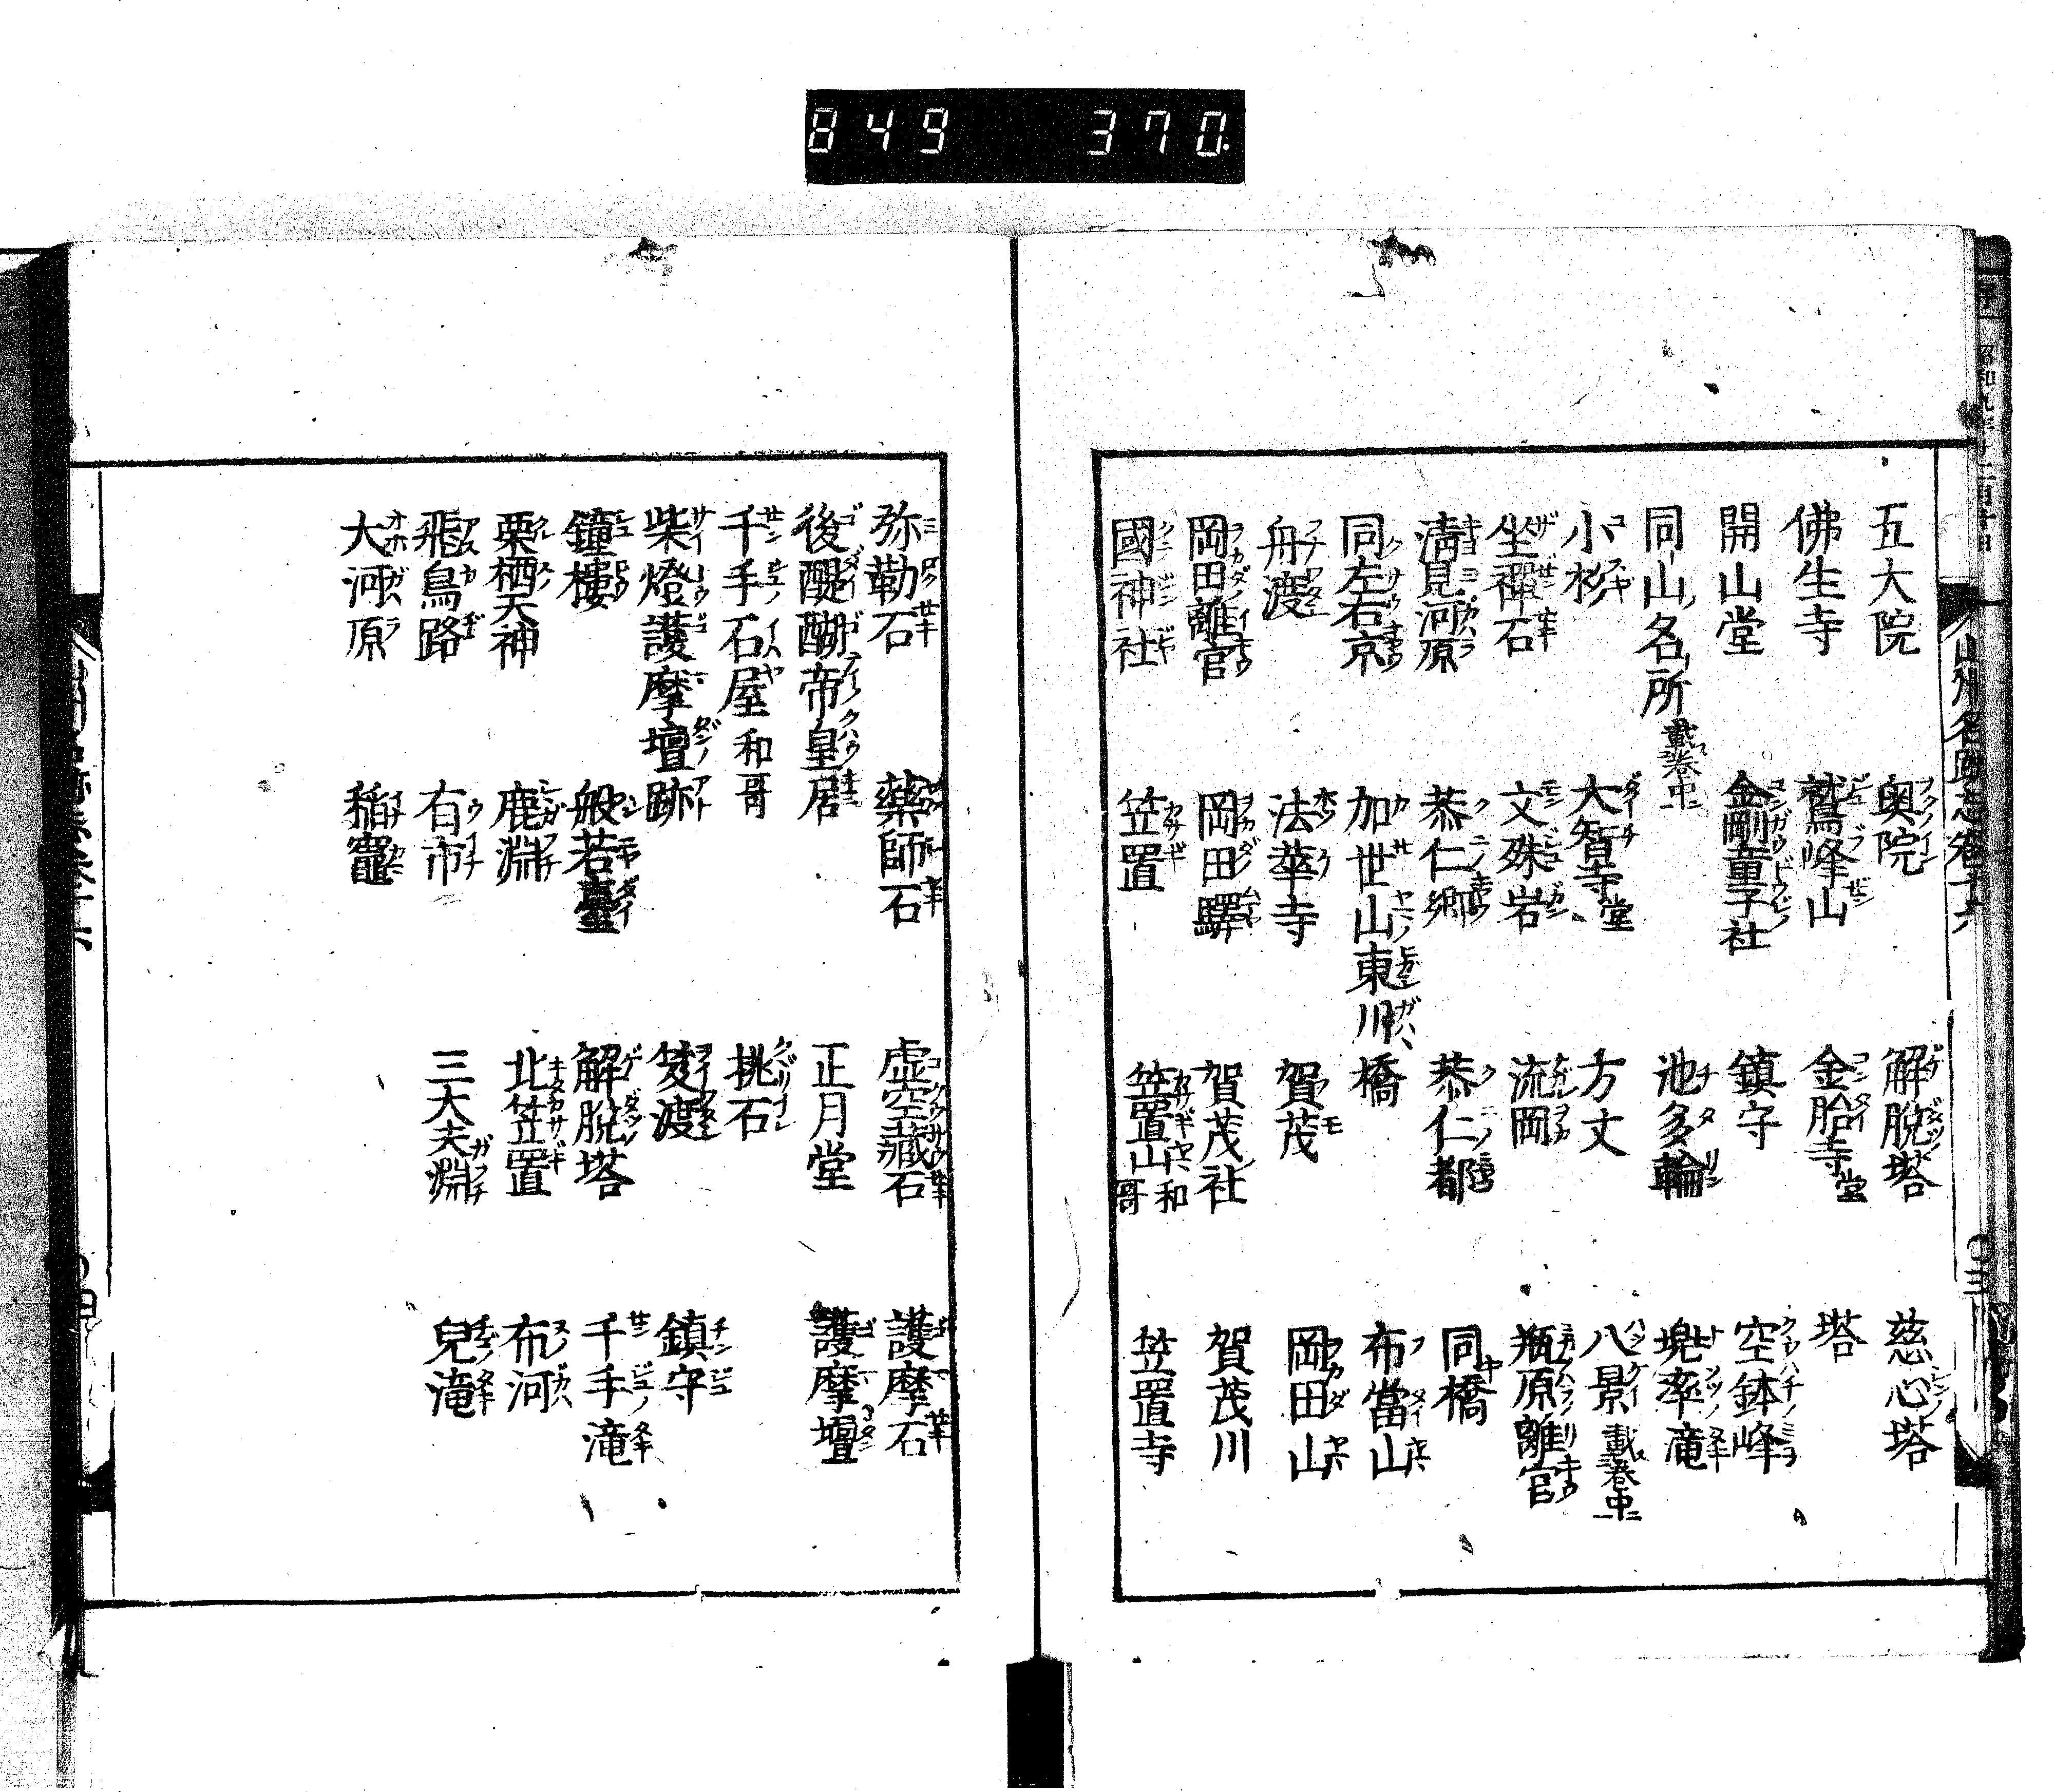 849 370
五大院 奥院 解脱塔 慈心塔
佛生寺 鷲峰山 金胎寺堂 塔
開山堂 金剛童子社 鎮守 空鉢峰
同山名所載巻中 池多輪 兜率滝
小杉 大智寺堂 方丈 八景載巻中
坐禪石 文殊岩 流岡 瓶原離宮
淸見河原 恭仁郷 恭仁都 同橋
同左右京 加世山東川 橋 布當山
舟渡 法華寺 賀茂 岡田山
岡田離宮 岡田驛 賀茂社 賀茂川
國神社 笠置 笠置山和哥 笠置寺
弥勒石 藥師石 虚空藏石 護摩石
後醍醐帝皇居 正月堂 護摩壇
千手石屋和哥 挑石
柴燈護摩壇跡 笈渡 鎮守
鐘樓 般若臺 解脱塔 千手滝
栗栖天神 鹿淵 北笠置 布河
飛鳥路 有市 三大夫淵 兒滝
大河原 稲竈